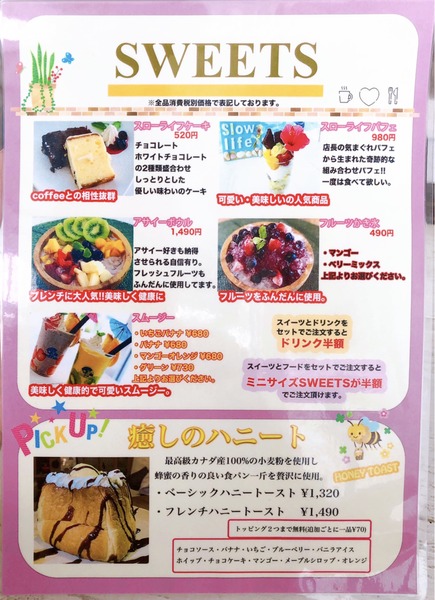 SWEETS
※全品消費税別価格で表記しております。
スローライフケーキ
520円
チョコレート
ホワイトチョコレート
の2種類盛合わせ
しっとりとした
優しい味わいのケーキ
coffeeとの相性抜群
Slow
life
スローライフパフェ
980円
店長の気まぐれパフェ
から生まれた奇跡的な
組み合わせパフェ!!
一度は食べて欲しい。
可愛い・美味しいの人気商品
アサイーボウル
1,490円
アサイー好きも納得
させられる自信有り。
フレッシュフルーツも
ふんだんに使用してます。
ブレンチに大人気!!美味しく健康に
フルーツかき氷
490円
・マンゴー
・ベリーミックス
上記よりお選びください。
フルーツをふんだんに使用。
スムージー
・いちごバナナ ¥680
・バナナ ¥680
・マンゴーオレンジ ¥680
・グリーン ¥730
上記よりお選びください。
美味しく健康的で可愛いスムージー。
スイーツとドリンクを
セットでご注文すると
ドリンク半額
スイーツとフードをセットでご注文すると
ミニサイズSWEETSが半額
でご注文頂けます。
PICK UP!
癒しのハニート
最高級カナダ産100%の小麦粉を使用し
蜂蜜の香りの良い食パン一斤を贅沢に使用。
HONEY TOAST
・ベーシックハニートースト ¥1,320
・フレンチハニートースト ¥1,490
トッピング2つまで無料(追加ごとに一品¥70)
チョコソース・バナナ・いちご・ブルーベリー・バニラアイス
ホイップ・チョコケーキ・マンゴー・メープルシロップ・オレンジ